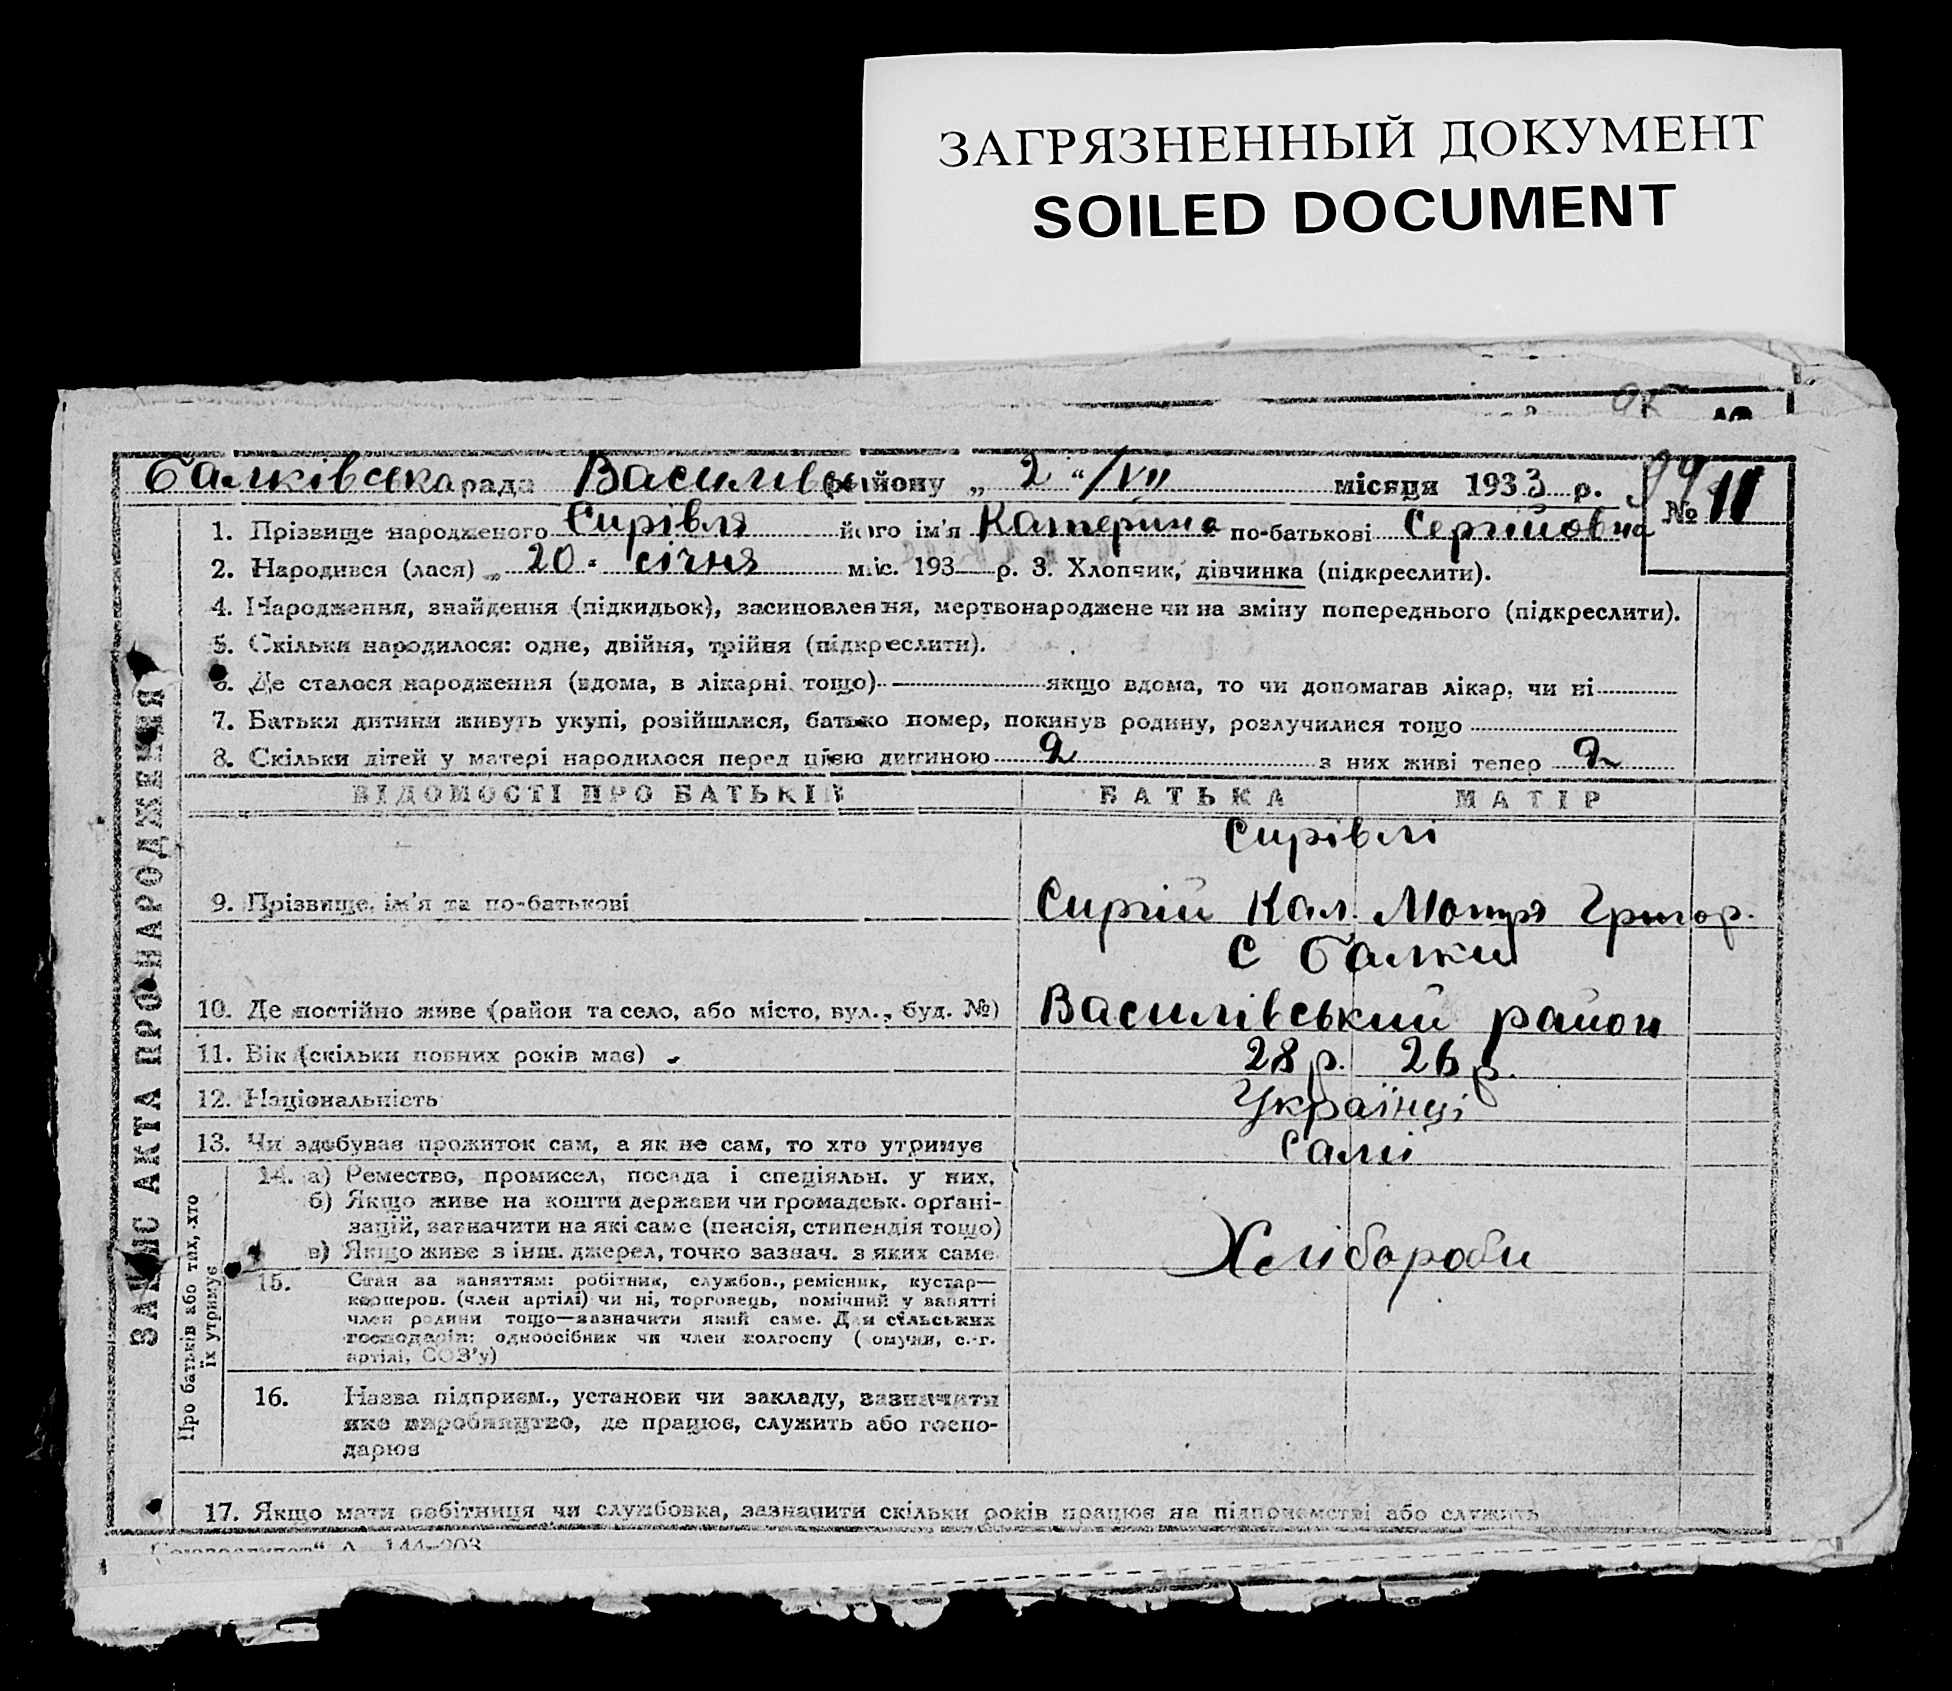 ЗАГРЯЗНЕННЫЙ ДОКУМЕНТ
SOILED DOCUMENT
Балківська рада Василівськ району „ 2 “ /VII місяця 1933 р. 99
№ 11
1. Прізвище народженого Сирівля його ім'я Катерина по-батькові Сергійовна
2. Народився (лася) „ 20. січня міс. 193 р. 3. Хлопчик, дівчинка (підкреслити).
4. Народження, знайдення (підкидьок), засиновлення, мертвонароджене чи на зміну попереднього (підкреслити).
5. Скільки народилося: одне, двійня, трійня (підкреслити).
6. Де сталося народження (вдома, в лікарні тощо) — якщо вдома, то чи допомагав лікар, чи ні
7. Батьки дитини живуть укупі, розійшлися, батько помер, покинув родину, розлучилися тощо
8. Скільки дітей у матері народилося перед цією дитиною 2 з них живі тепер 2
ВІДОМОСТІ ПРО БАТЬКІВ БАТЬКА МАТІР
Сирівлі
9. Прізвище, ім'я та по-батькові Сиргій Кал. Мотря Григор.
с Балки
10. Де постійно живе (район та село, або місто, вул., буд. №) Василівський район
11. Вік (скільки повних років має) 28 р. 26 р.
12. Національність Українці
13. Чи здобуває прожиток сам, а як не сам, то хто утримує самі
14. а) Ремество, промисел, посада і спеціяльн. у них,
б) Якщо живе на кошти держави чи громадськ. органі-
зацій, зазначити на які саме (пенсія, стипендія тощо)
в) Якщо живе з інш. джерел, точно зазнач. з яких саме
Хлібороби
15. Стан за заняттям: робітник, службов., ремісник, кустар—
коопеpов. (член артілі) чи ні, торговець, помічний у занятті
член родини тощо—зазначити який саме. Для сільських
господарів: одноосібник чи член колгоспу (комуни, с.-г.
артілі, СОЗ'у)
16. Назва підприєм., установи чи закладу, зазначити
яке виробництво, де працює, служить або госпо-
дарює
17. Якщо мати робітниця чи службовка, зазначити скільки років працює на підприємстві або служить
ЗАПИС АКТА ПРО НАРОДЖЕННЯ
Про батьків або тих, хто
їх утримує